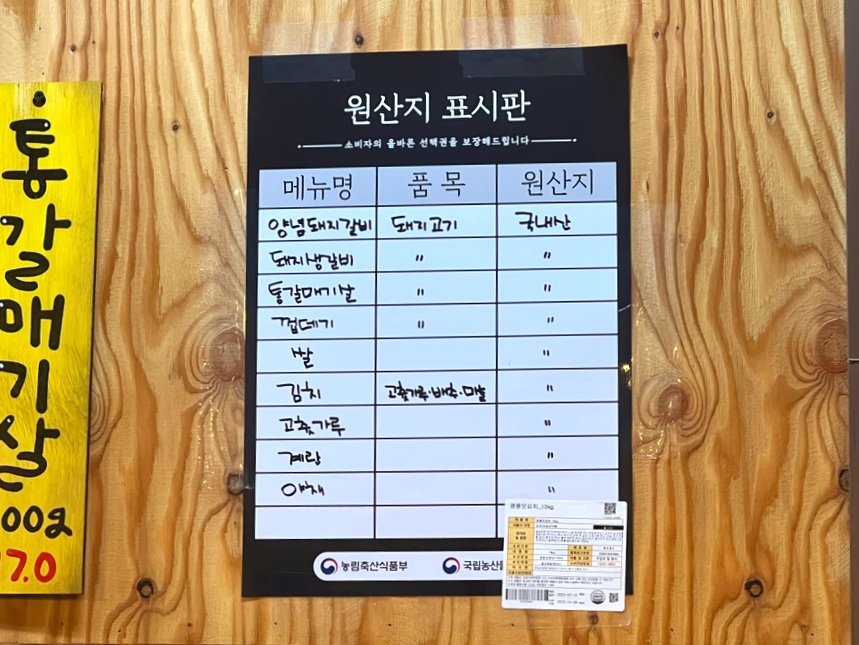 통갈매기살
00g
17.0
원산지 표시판
소비자의 올바른 선택권을 보장해드립니다
메뉴명 품 목 원산지
양념돼지갈비 돼지고기 국내산
돼지생갈비 〃 〃
통갈매기살 〃 〃
껍데기 〃 〃
쌀 〃
김치 고춧가루·배추·마늘 〃
고춧가루 〃
계란 〃
야채 〃
농림축산식품부 국립농산